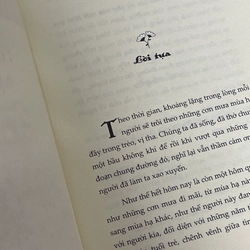 Lời tựa
Theo thời gian, khoảng lặng trong lòng mỗi
người sẽ trôi theo những cơn mưa mùa
đầy trong trẻo, vị tha. Chúng ta đã sống, đã thở chung
một bầu không khí để rồi khi vượt qua những
đoạn chung đường đó, nghĩ lại vẫn thầm cảm ơn
người đã làm ta xao xuyến.
Như thế hết hôm nay là còn một hôm
như những cơn mưa đi mãi, từ mùa hạ
sang mùa hạ khác, như thể người này đang
với người kia, đối diện với những năm
của tuổi trẻ, chênh vênh giữa